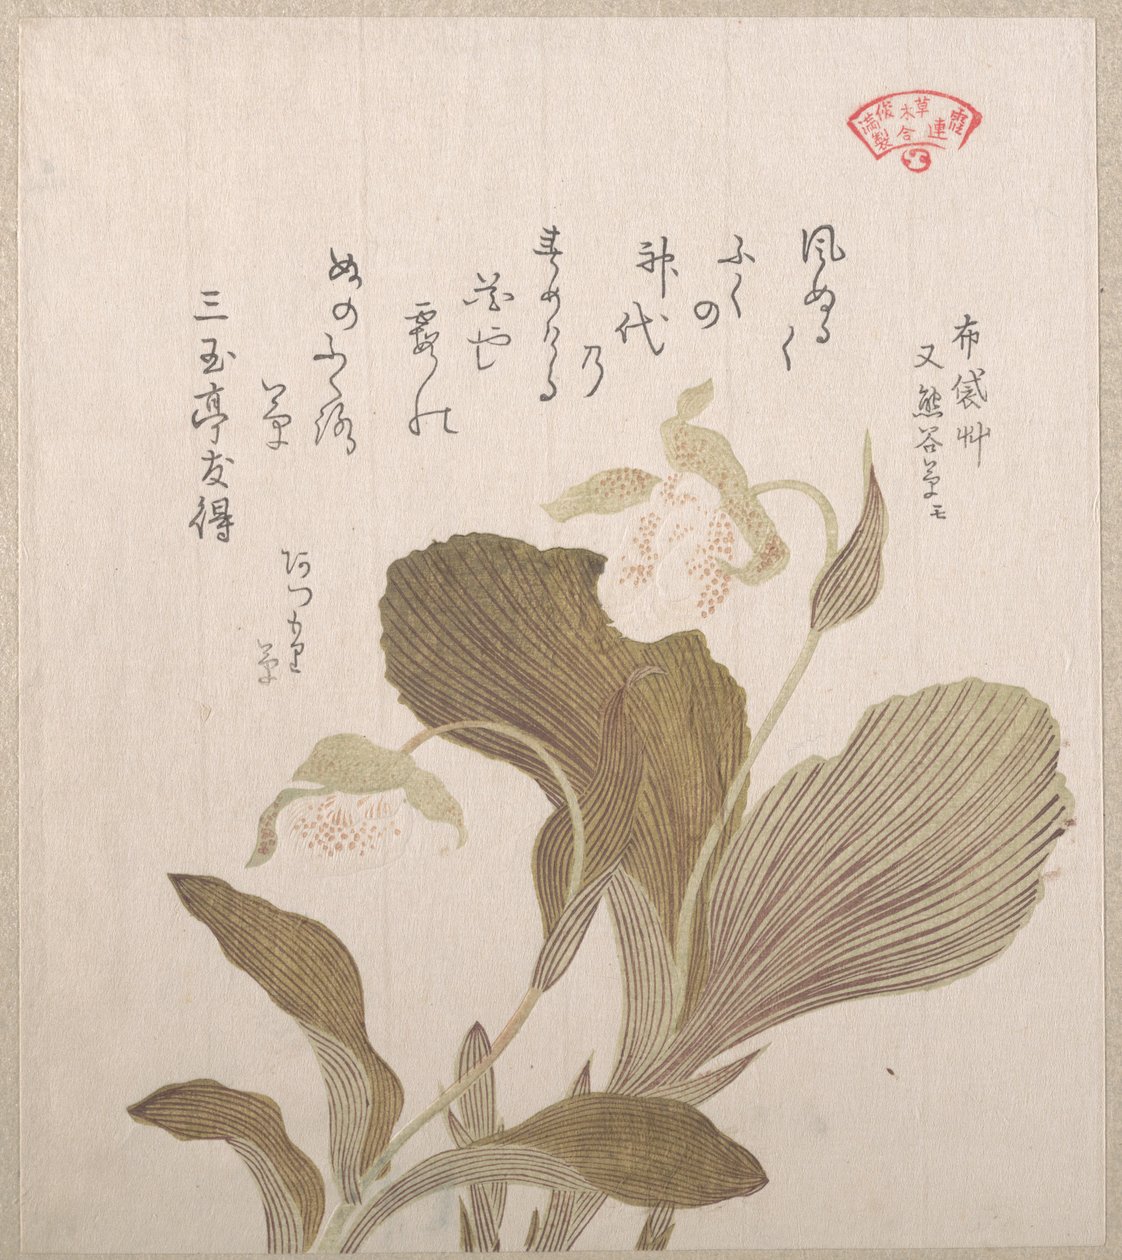 霞連
草木合
俊満製
布袋艸
又熊谷草モ
風ぬるく
ふくの
神代乃
春めける
花や
霞の
ぬのふくろ
草
三玉亭友得
あつもり
草